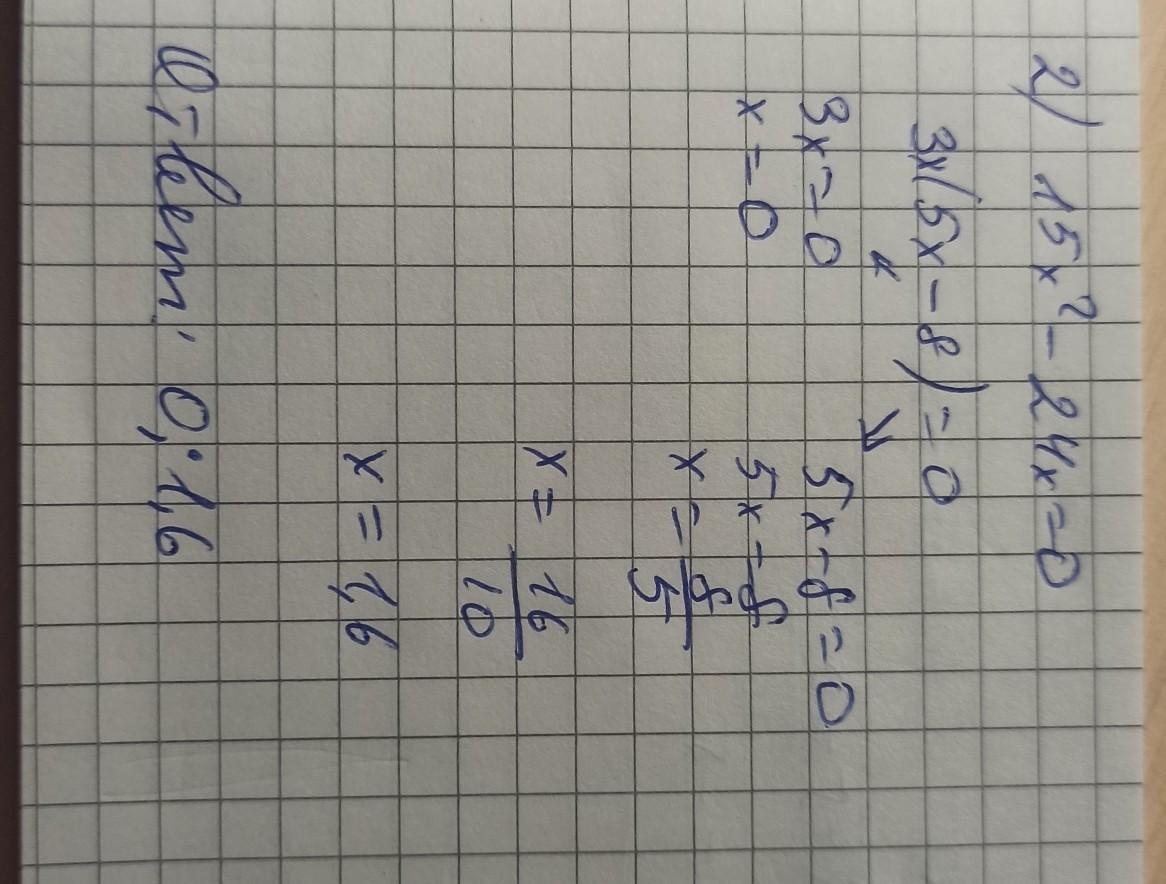 2) 15x² - 24x = 0
3x(5x - 8) = 0
↙ ↘
3x = 0 5x - 8 = 0
x = 0 5x = 8
x = 8/5
x = 16/10
x = 1,6
Ответ: 0; 1,6